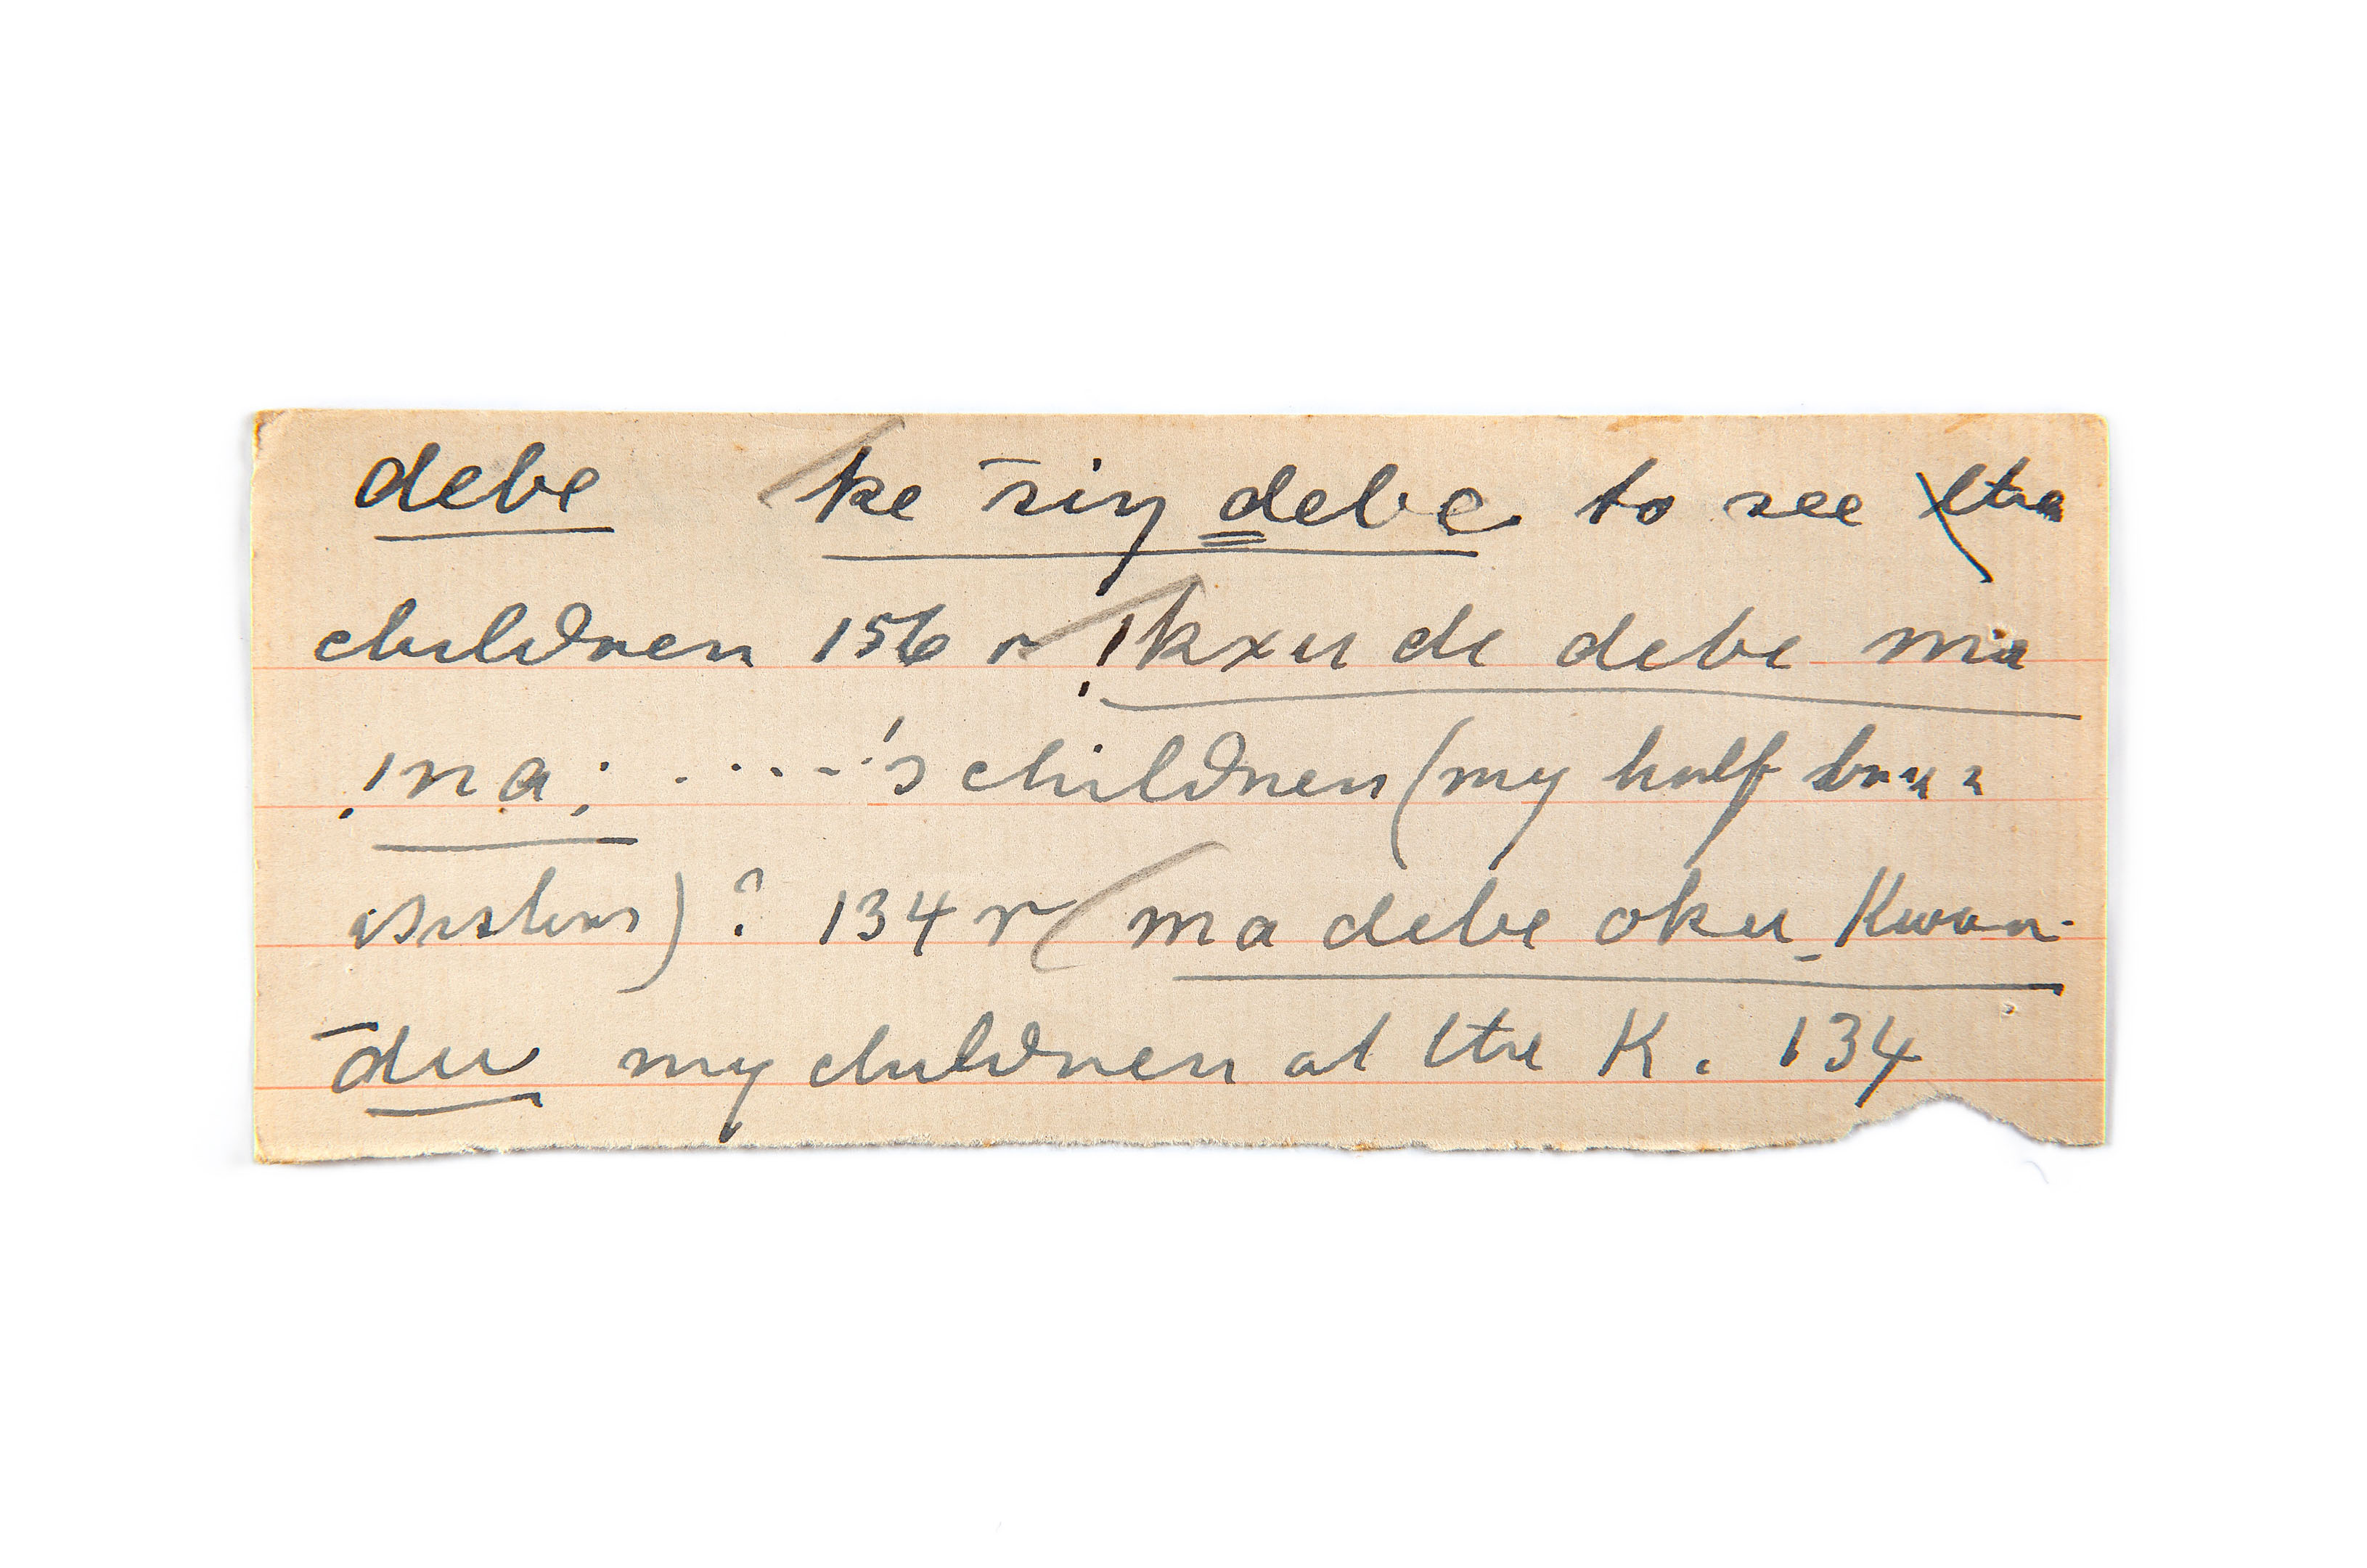 debe ke s̄iŋ debe to see the
children 156 r !kxu de debe ma
!na; ....'s children (my half bro
sisters)? 134 r ma debe oku Kwan-
d̄u my children at the K. 134